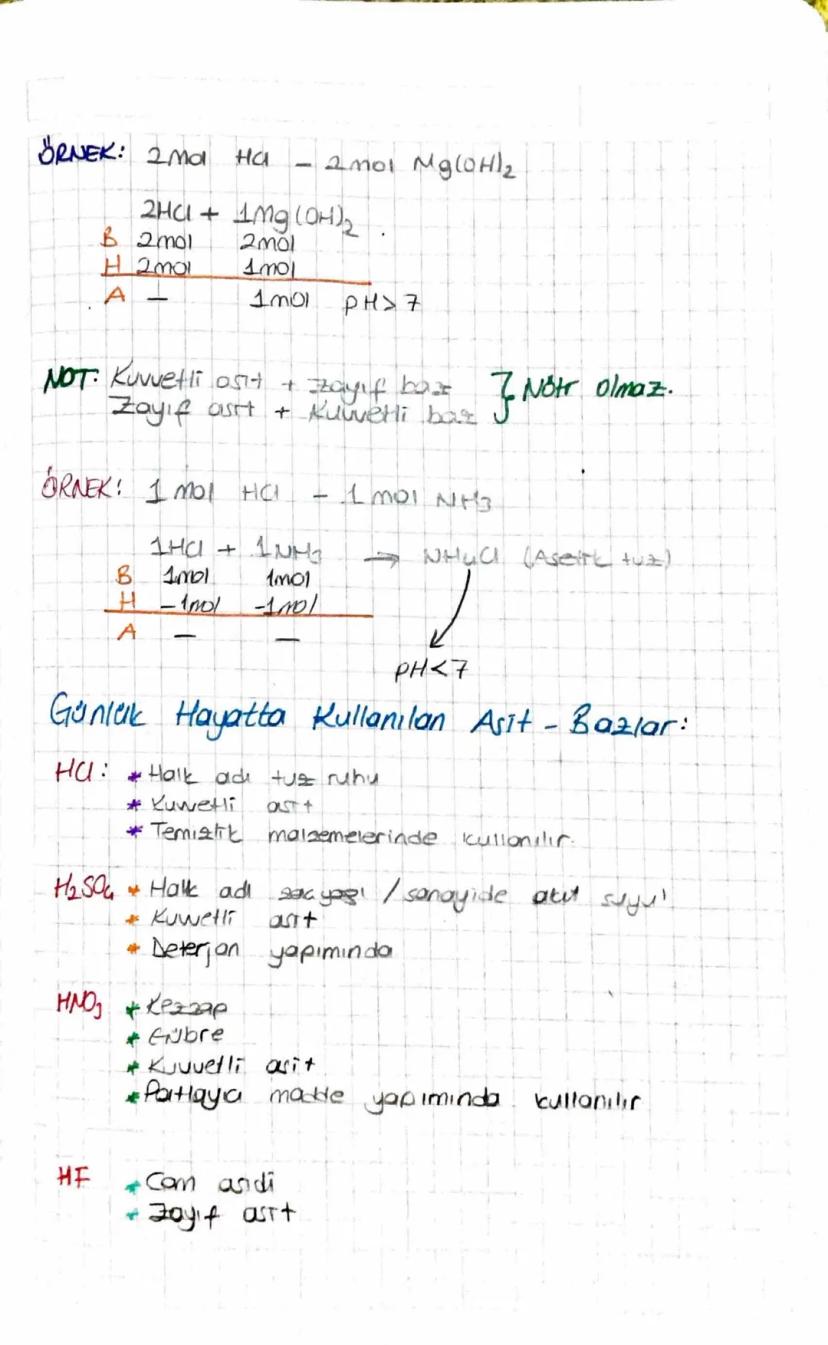 ÖRNEK: 2mol HCl - 2mol Mg(OH)2
2HCl + 1Mg(OH)2
B 2mol 2mol
H 2mol 1mol
A - 1mol pH>7
NOT: Kuvvetli asit + zayıf baz } Nötr olmaz.
Zayıf asit + Kuvvetli baz
ÖRNEK: 1 mol HCl - 1 mol NH3
1HCl + 1NH3 → NH4Cl (Asetik tuz)
B 1mol 1mol
H -1mol -1mol
A - -
pH<7
Günlük Hayatta Kullanılan Asit - Bazlar:
HCl: * Halk adı tuz ruhu
* Kuvvetli asit
* Temizlik malzemelerinde kullanılır.
H2SO4 * Halk adı zaç yağı / sanayide akü suyu
* Kuvvetli asit
* Deterjan yapımında
HNO3 * Kezzap
* Gübre
* Kuvvetli asit
* Patlayıcı madde yapımında kullanılır
HF * Cam asidi
* Zayıf asit